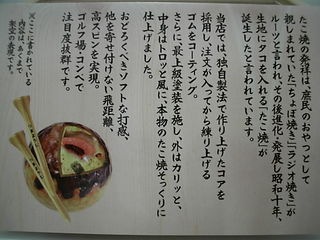 たこ焼の発祥は、庶民のおやつとして
親しまれていた「ちょぼ焼き」「ラジオ焼き」が
ルーツと言われ、その後進化・発展し昭和十年、
生地にタコを入れる「たこ焼」が
誕生したと言われています。
当店では、独自製法で作り上げたコアを
採用し、注文が入ってから練り上げる
ゴムをコーティング。
さらに、最上級塗装を施し、外はカリッと、
中身はトロッと風に、本物のたこ焼そっくりに
仕上げました。
おどろくべきソフトな打感、
他を寄せ付けない飛距離、
高スピンを実現。
ゴルフ場・コンペで
注目度抜群です。
※ここに書かれている
内容は、あくまで
架空の表現です。